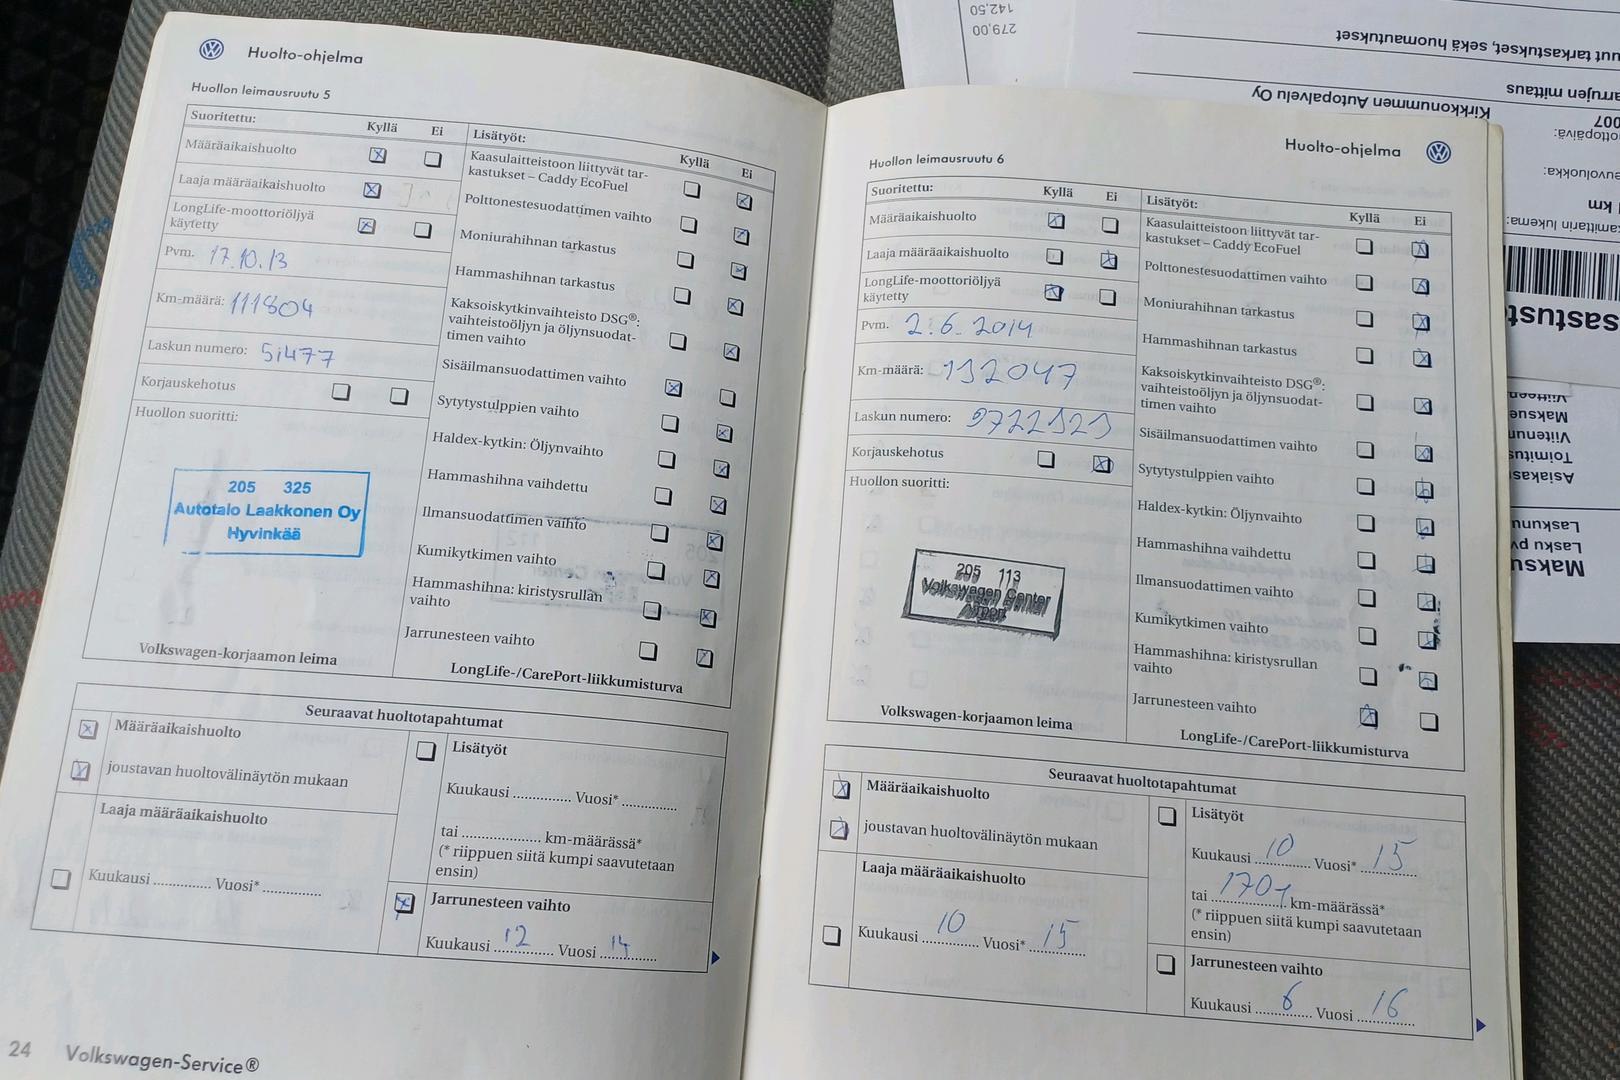 Huolto-ohjelma
Huollon leimausruutu 5
Suoritettu:
Kyllä
Ei
Määräaikaishuolto
Laaja määräaikaishuolto
LongLife-moottoriöljyä
käytetty
Pvm. 17.10.13
Km-määrä: 111804
Laskun numero: 51477
Korjauskehotus
Huollon suoritti:
205 325
Autotalo Laakkonen Oy
Hyvinkää
Volkswagen-korjaamon leima
Lisätyöt:
Kyllä
Ei
Kaasulaitteistoon liittyvät tar-
kastukset – Caddy EcoFuel
Polttonestesuodattimen vaihto
Moniurahihnan tarkastus
Hammashihnan tarkastus
Kaksoiskytkinvaihteisto DSG®:
vaihteistoöljyn ja öljynsuodat-
timen vaihto
Sisäilmansuodattimen vaihto
Sytytystulppien vaihto
Haldex-kytkin: Öljynvaihto
Hammashihna vaihdettu
Ilmansuodattimen vaihto
Kumikytkimen vaihto
Hammashihna: kiristysrullan
vaihto
Jarrunesteen vaihto
LongLife-/CarePort-liikkumisturva
Seuraavat huoltotapahtumat
Määräaikaishuolto
joustavan huoltovälinäytön mukaan
Laaja määräaikaishuolto
Kuukausi ............. Vuosi* .............
Lisätyöt
Kuukausi ............. Vuosi* .............
tai ............. km-määrässä*
(* riippuen siitä kumpi saavutetaan
ensin)
Jarrunesteen vaihto
Kuukausi 12 Vuosi 14
24 Volkswagen-Service®
Huolto-ohjelma
Huollon leimausruutu 6
Suoritettu:
Kyllä
Ei
Määräaikaishuolto
Laaja määräaikaishuolto
LongLife-moottoriöljyä
käytetty
Pvm. 2.6.2014
Km-määrä: 132047
Laskun numero: 9722323
Korjauskehotus
Huollon suoritti:
205 113
Volkswagen Center
Airport
Volkswagen-korjaamon leima
Lisätyöt:
Kyllä
Ei
Kaasulaitteistoon liittyvät tar-
kastukset – Caddy EcoFuel
Polttonestesuodattimen vaihto
Moniurahihnan tarkastus
Hammashihnan tarkastus
Kaksoiskytkinvaihteisto DSG®:
vaihteistoöljyn ja öljynsuodat-
timen vaihto
Sisäilmansuodattimen vaihto
Sytytystulppien vaihto
Haldex-kytkin: Öljynvaihto
Hammashihna vaihdettu
Ilmansuodattimen vaihto
Kumikytkimen vaihto
Hammashihna: kiristysrullan
vaihto
Jarrunesteen vaihto
LongLife-/CarePort-liikkumisturva
Seuraavat huoltotapahtumat
Määräaikaishuolto
joustavan huoltovälinäytön mukaan
Laaja määräaikaishuolto
Kuukausi 10 Vuosi* 15
Lisätyöt
Kuukausi 10 Vuosi* 15
tai 170t km-määrässä*
(* riippuen siitä kumpi saavutetaan
ensin)
Jarrunesteen vaihto
Kuukausi 6 Vuosi 16
142,50
279,00
tarkastukset, sekä huomautukset
mittaus
Kirkkonummen Autopalvelu Oy
km
lukema:
Maksu
Lasku pv
Laskunu
Asiakas
Toimitus
Viitenu
Maksue